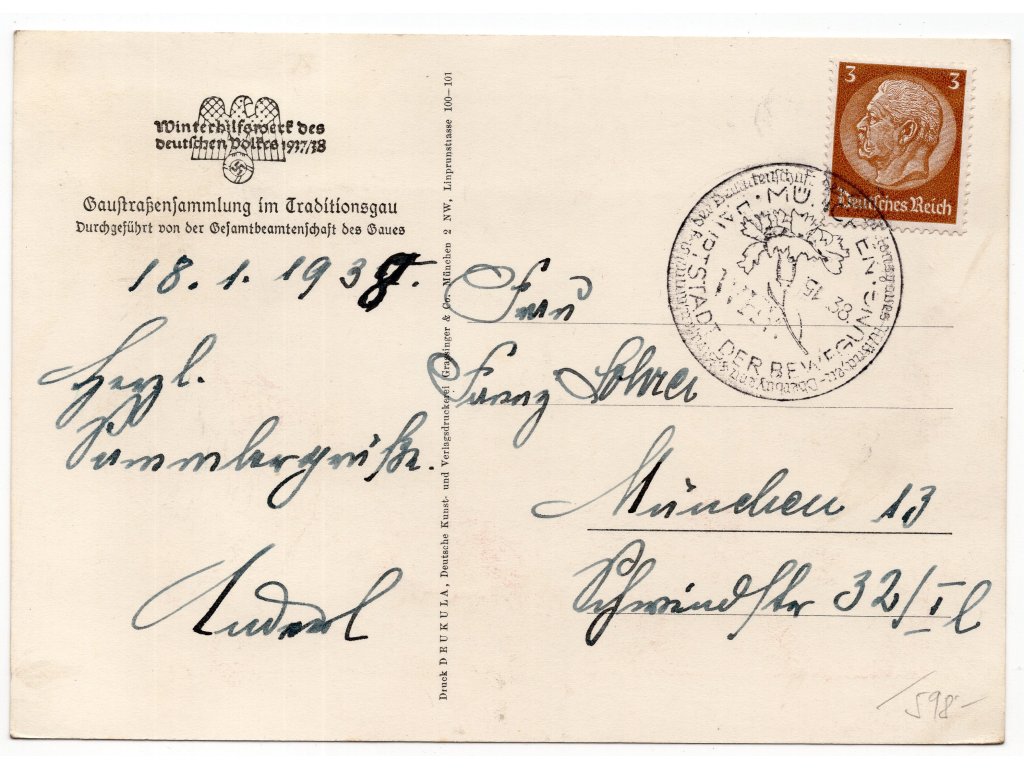 Winterhilfswerk des
deutschen Volkes 1937/38
Gaustraßensammlung im Traditionsgau
Durchgeführt von der Gesamtbeamtenschaft des Gaues
18. 1. 1938.
Herzl.
Sammlergrüße.
Anderl
Druck DEUKULA, Deutsche Kunst- und Verlagsdruckerei Grassinger & Co. München 2 NW, Linprunstrasse 100-101
3 3
Deutsches Reich
MÜNCHEN
HAUPTSTADT DER BEWEGUNG
15 38
Frau
Franz
München 13
Schwindstr 32/I l
598-